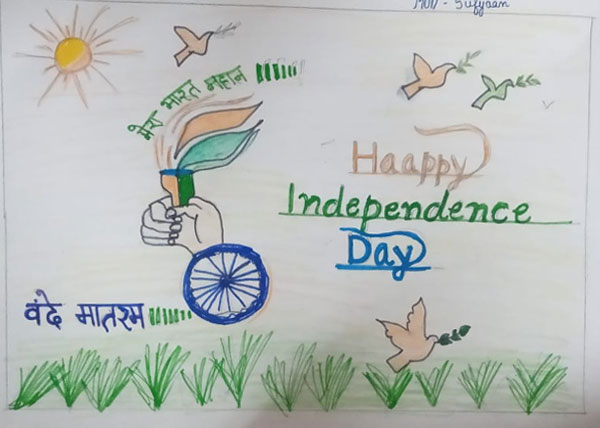 Mohd - Sufyaan
मेरा भारत महान
Haappy
Independence
Day
वंदे मातरम